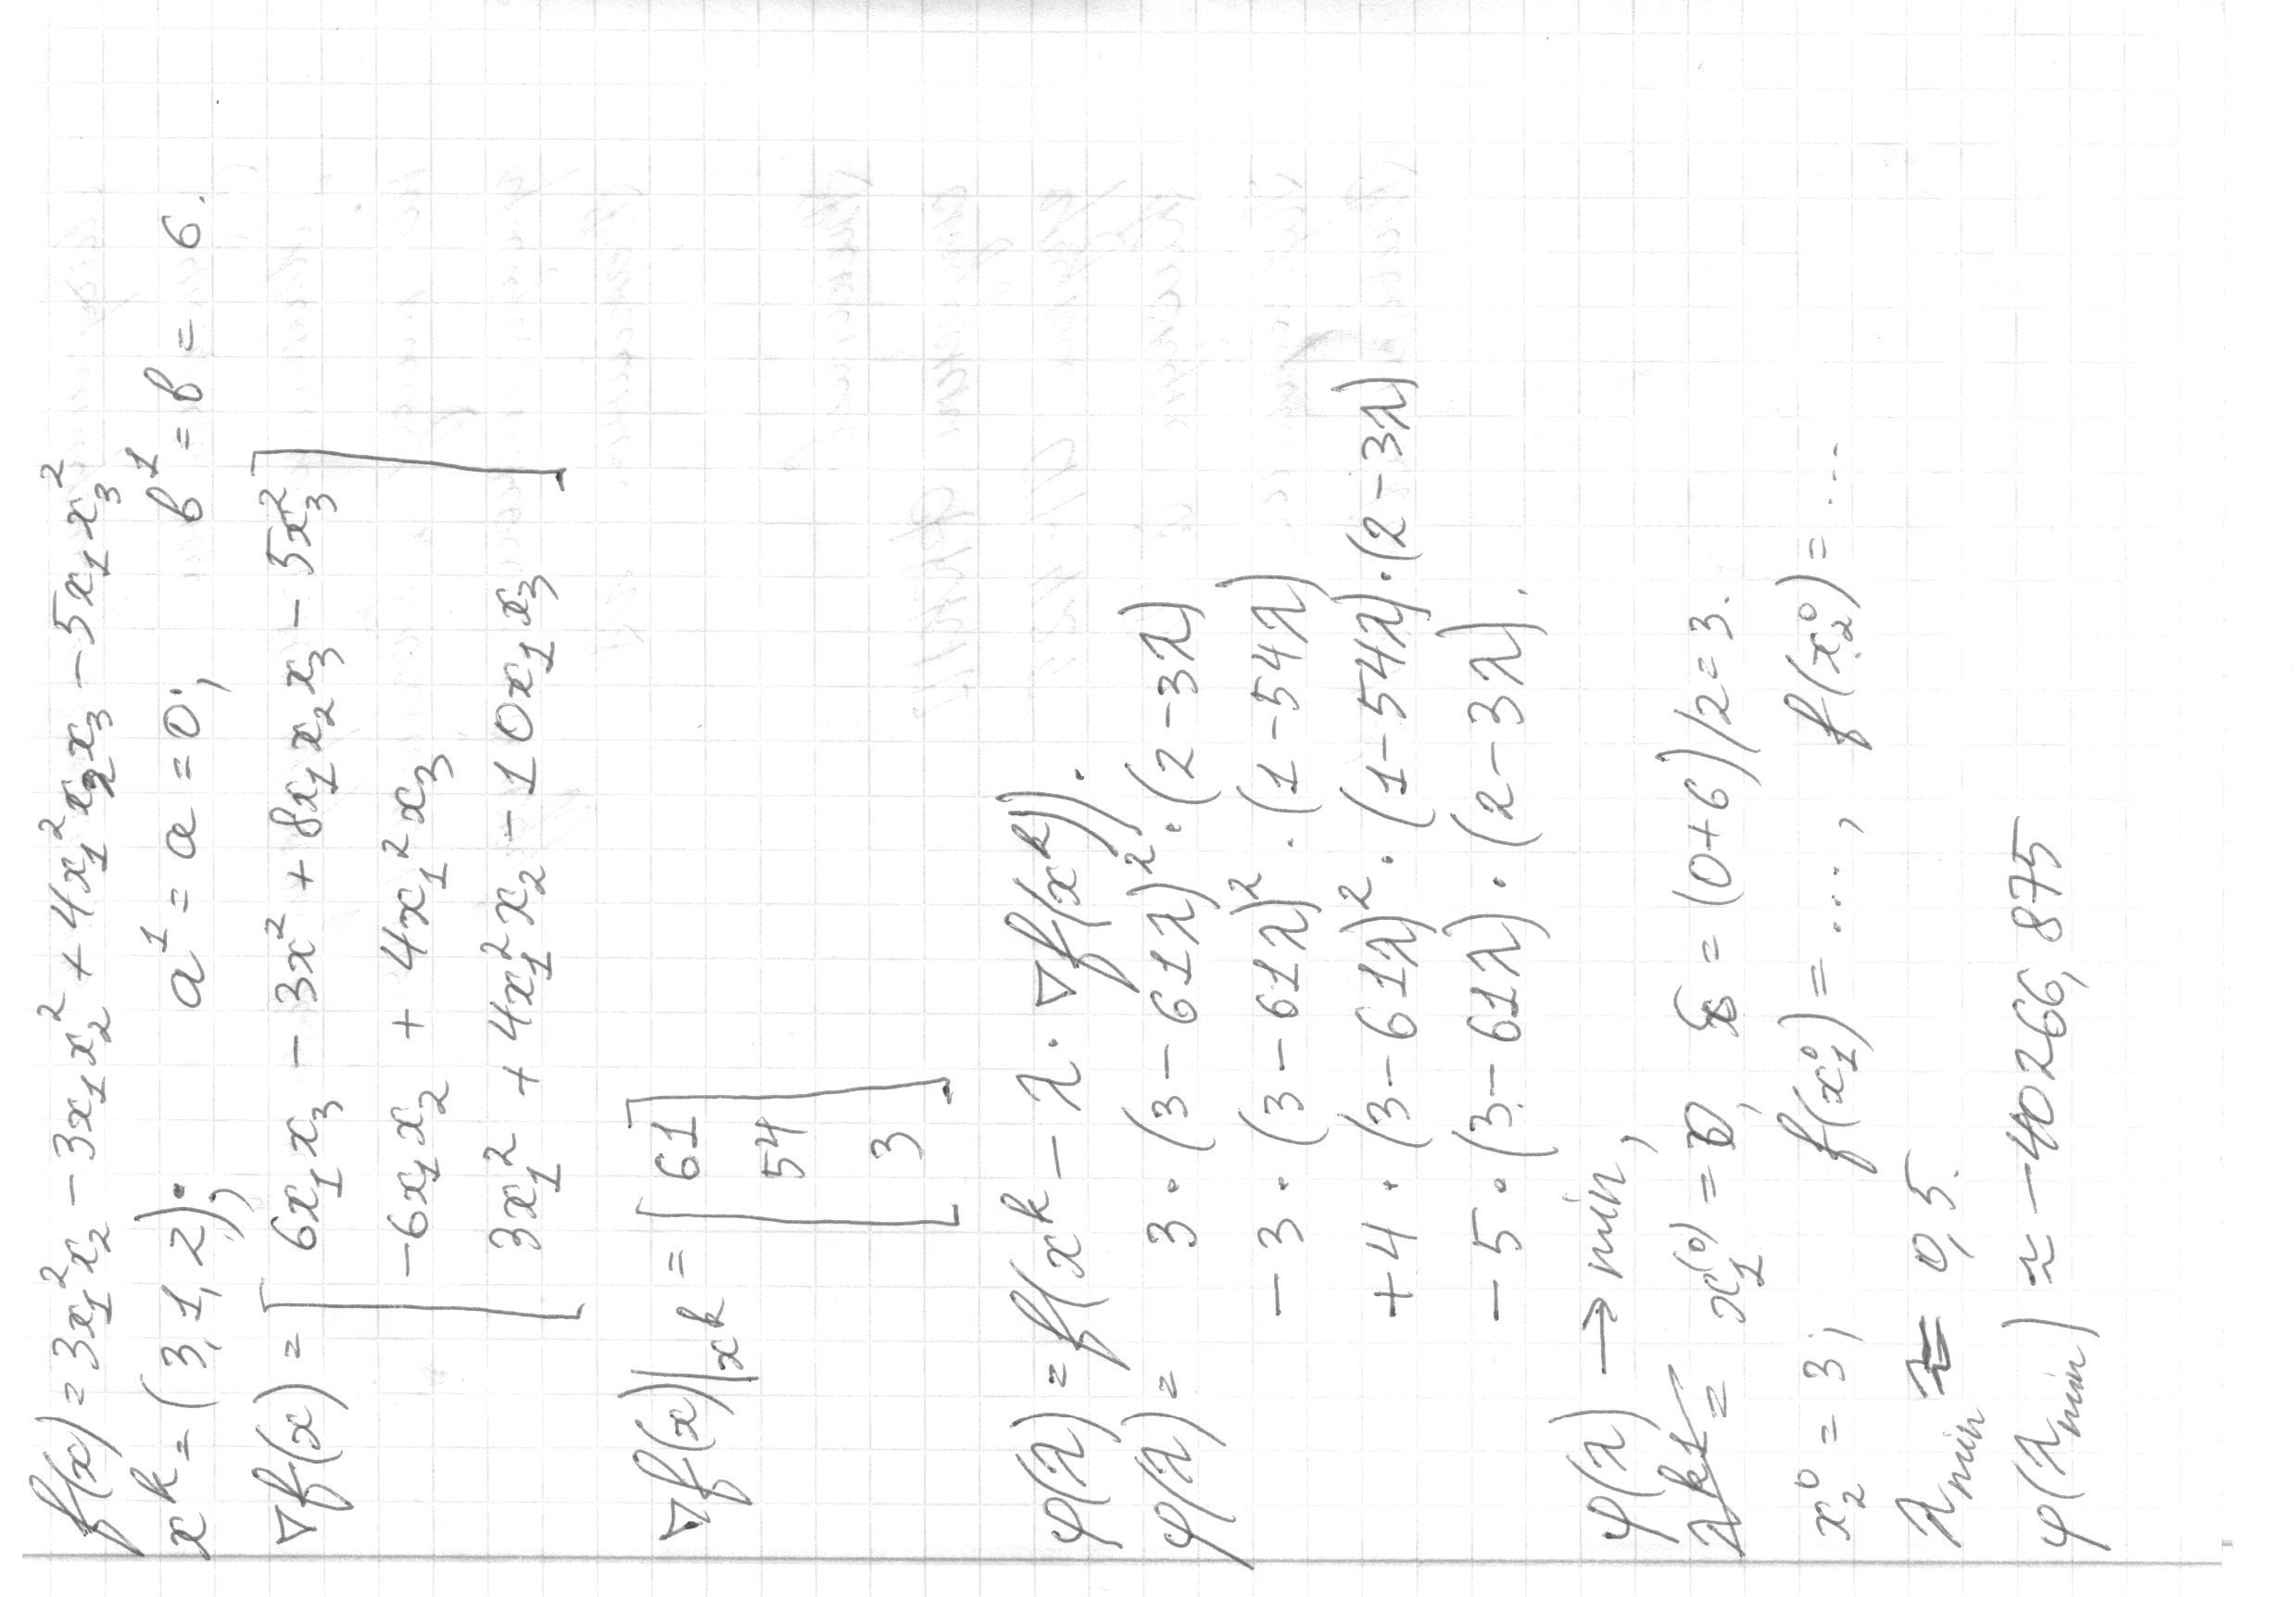 f(x) = 3x₁²x₂ − 3x₁x₂² + 4x₁²x₂x₃ − 5x₁x₃²
xᵏ = (3, 1, 2); a¹ = a = 0; b¹ = b = 6.
∇f(x) = [ 6x₁x₃ − 3x² + 8x₁x₂x₃ − 5x₃²
−6x₁x₂ + 4x₁²x₃
3x₁² + 4x₁²x₂ − 10x₁x₃ ]
∇f(x)|xᵏ = [ 61
54
3 ]
φ(λ) = f(xᵏ − λ · ∇f(xᵏ)).
φ(λ) = 3 · (3 − 61λ)² · (2 − 3λ)
− 3 · (3 − 61λ)² · (1 − 54λ)
+ 4 · (3 − 61λ)² · (1 − 54λ) · (2 − 3λ)
− 5 · (3 − 61λ) · (2 − 3λ).
φ(λ) → min,
x₁⁽⁰⁾ = 0, = (0+6)/2 = 3.
x₂⁰ = 3; f(x₁⁰) = ...., f(x₂⁰) = ...
λmin = 0,5.
φ(λmin) ≈ −40266,875